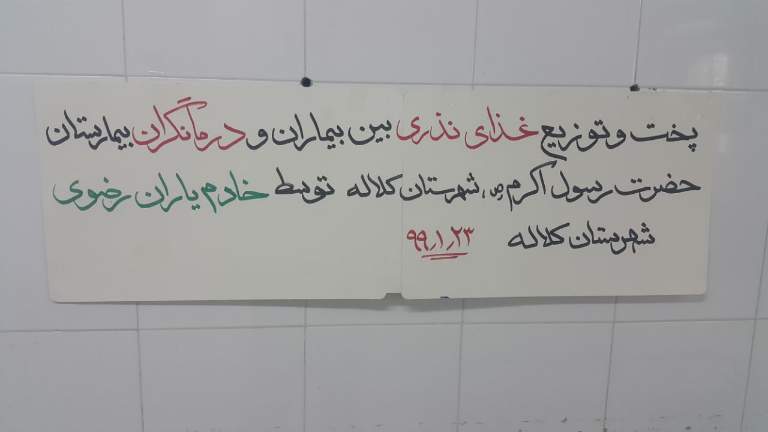 پخت و توزیع غذای نذری بین بیماران و درمانگران بیمارستان
حضرت رسول اکرم (ص) شهرستان کلاله توسط خادم یاران رضوی
شهرستان کلاله ۹۹/۱/۲۳